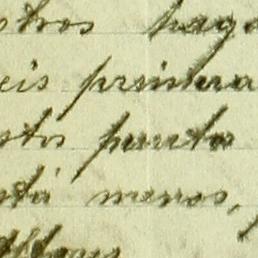 otros paga
eis primera
stos punto
stá menos,